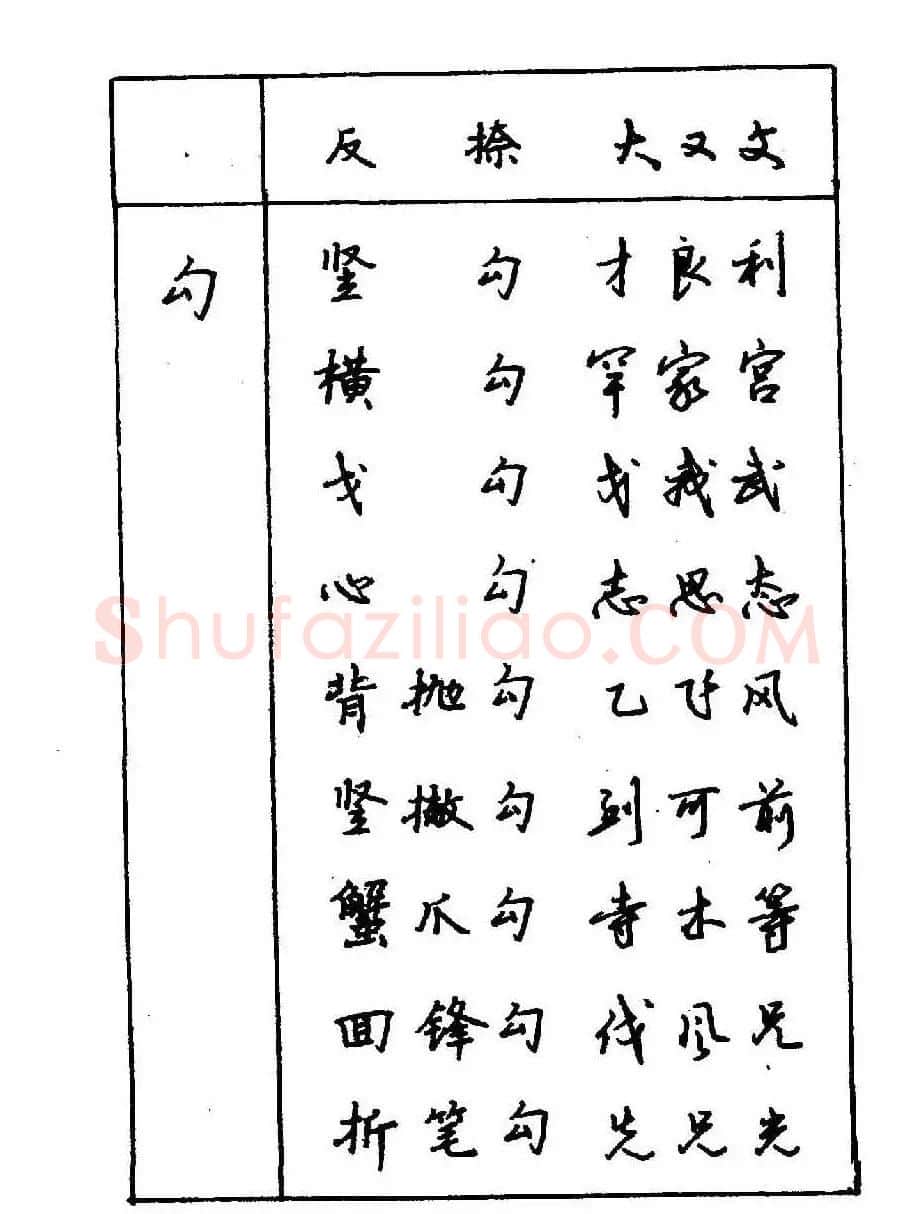 反 捺 大又文
勾 竖 勾 才良利
横 勾 罕家宫
戈 勾 戈我武
心 勾 志思态
Shufaziliao.COM
背抛勾 乙飞风
竖撇勾 到可前
蟹爪勾 寺木等
回锋勾 伐风兄
折笔勾 先兄光